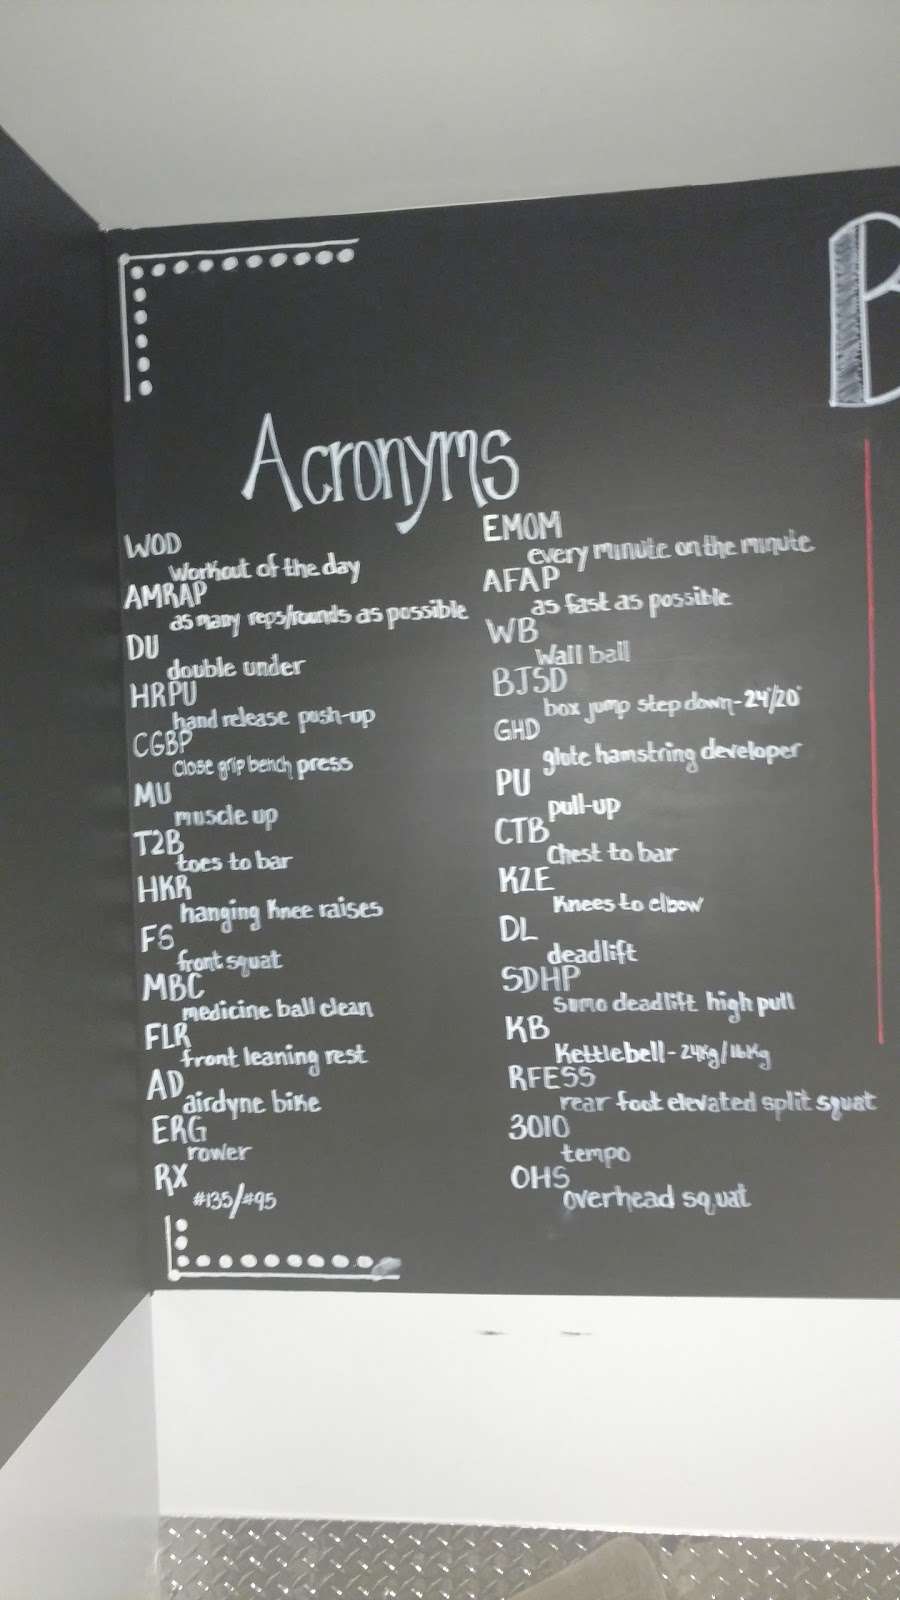 B
Acronyms
WOD
Workout of the day
AMRAP
as many reps/rounds as possible
DU
double under
HRPU
hand release push-up
CGBP
Close grip bench press
MU
muscle up
T2B
toes to bar
HKR
hanging knee raises
FS
front squat
MBC
medicine ball clean
FLR
front leaning rest
AD
airdyne bike
ERG
rower
RX
#135/#95
EMOM
every minute on the minute
AFAP
as fast as possible
WB
Wall ball
BJSD
box jump step down-24"/20"
GHD
glute hamstring developer
PU
pull-up
CTB
Chest to bar
K2E
Knees to elbow
DL
deadlift
SDHP
sumo deadlift high pull
KB
Kettlebell-24Kg/16Kg
RFESS
rear foot elevated split squat
3010
tempo
OHS
overhead squat